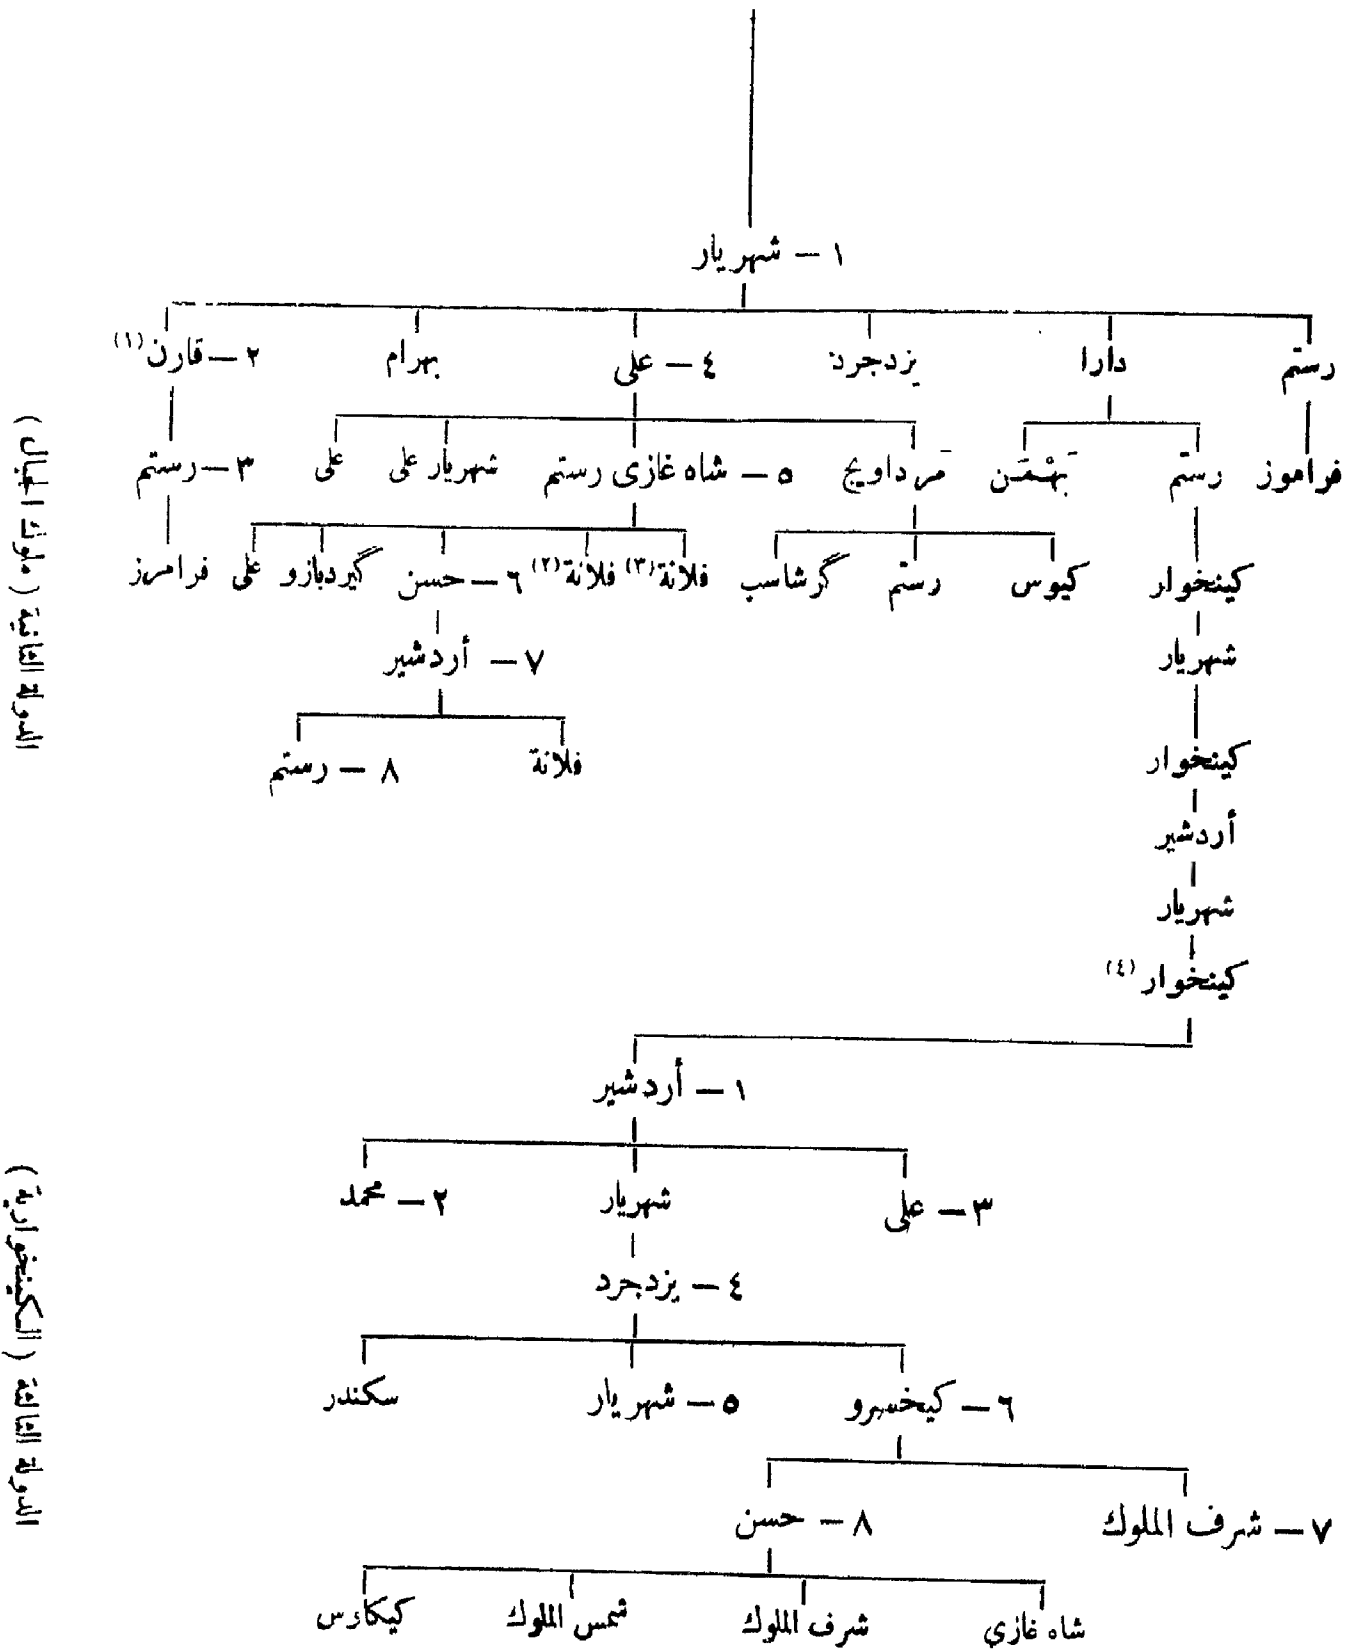 ١ – شهريار
رستم دارا يزدجرد ٤ – على بهرام ٢ – قارن (١)
فراموز رستم بَهْمَن مَرداويج ٥ – شاه غازى رستم شهريار على على ٣ – رستم
كينخوار كيوس رستم گرشاسب فلانة (٣) فلانة (٢) ٦ – حسن گيردبازو على فرامرز
شهريار ٧ – أردشير
كينخوار فلانة ٨ – رستم
أردشير
شهريار
كينخوار (٤)
١ – أردشير
٣ – على شهريار ٢ – محمد
٤ – يزدجرد
٦ – كيخسرو ٥ – شهريار سكندر
٧ – شرف الملوك ٨ – حسن
شاه غازي شرف الملوك شمس الملوك كيكاوس
الدولة الثانية (ملوك الجبال)
الدولة الثالثة (الكينخوارية)